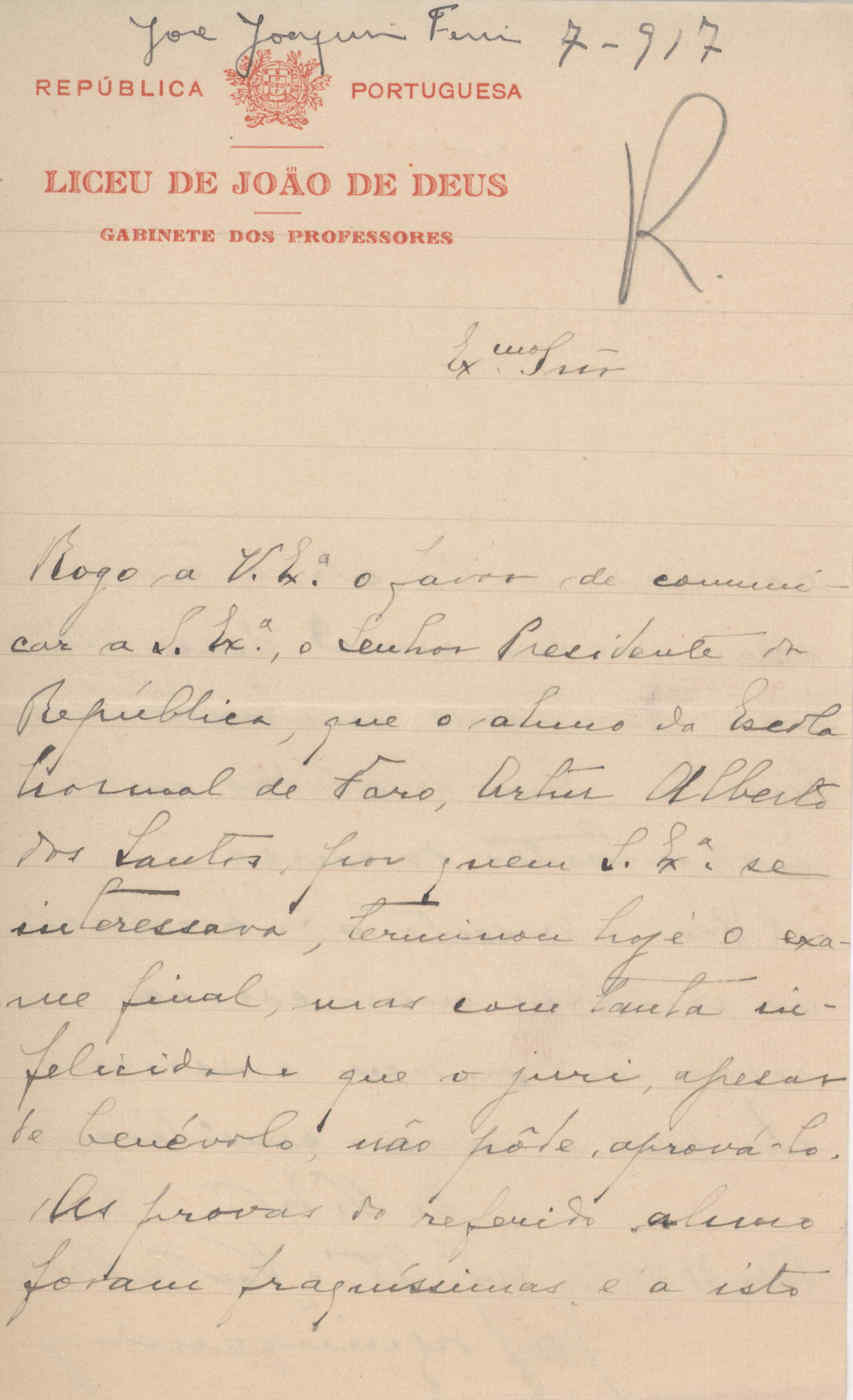 José Joaquim 7-917
REPÚBLICA PORTUGUESA
LICEU DE JOÃO DE DEUS
GABINETE DOS PROFESSORES
R.
Ex.mo Snr
Rogo a V. Ex.ª o favor de comuni-
car a S. Ex.ª, o Senhor Presidente da
República, que o aluno da Escola
Normal de Faro, Artur Alberto
dos Santos, por quem S. Ex.ª se
interessava, terminou hoje o exa-
me final, mas com tanta in-
felicidade que o juri, apesar
de benévolo, não pôde aprová-lo.
As provas do referido aluno
foram fraquíssimas e a isto